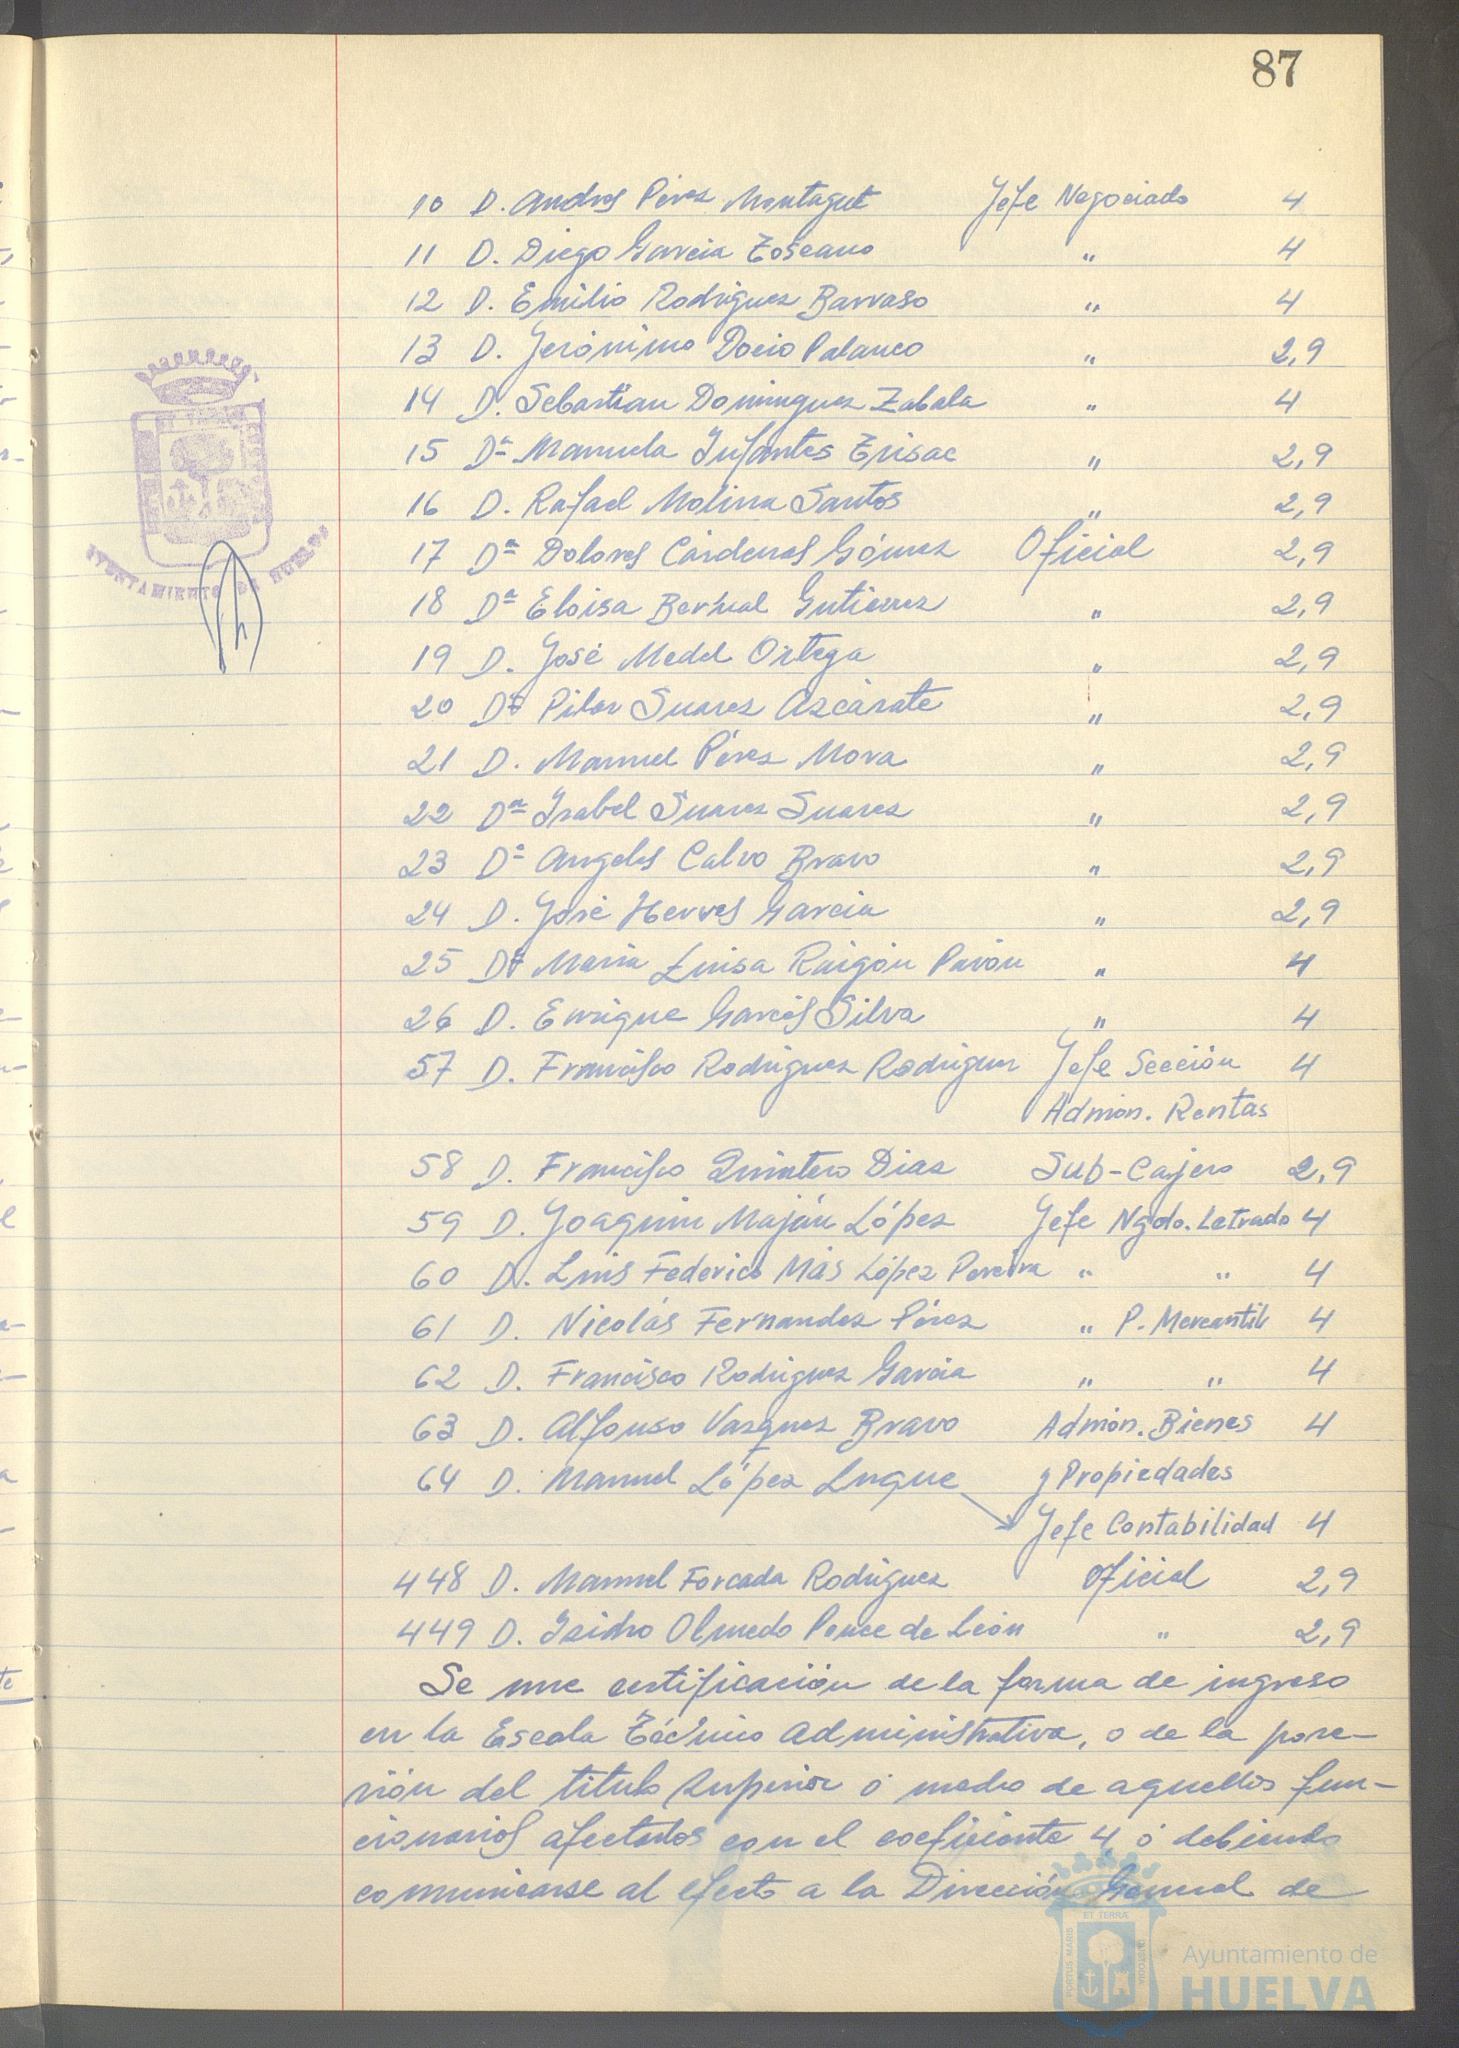 87
10 D. Andres Pérez Montagut Jefe Negociado 4
11 D. Diego Garcia Toscano " 4
12 D. Emilio Rodriguez Barraso " 4
13 D. Jerónimo Docio Palanco " 2,9
14 D. Sebastian Dominguez Zabala " 4
15 Dª Manuela Infantes " 2,9
16 D. Rafael Molina Santos " 2,9
17 Dª Dolores Cárdenas Gómez Oficial 2,9
18 Dª Eloisa Bernal Gutierrez " 2,9
19 D. José Medel Ortega " 2,9
20 Dª Pilar Suarez Azcárate " 2,9
21 D. Manuel Pérez Mora " 2,9
22 Dª Isabel Suarez Suarez " 2,9
23 Dª Angeles Calvo Bravo " 2,9
24 D. José Herves Garcia " 2,9
25 Dª Maria Luisa Raigón Pavón " 4
26 D. Enrique Garcés Silva " 4
57 D. Francisco Rodriguez Rodriguez Jefe Sección 4
Admón. Rentas
58 D. Francisco Quintero Diaz Sub-Cajero 2,9
59 D. Joaquin Maján López Jefe Ngdo. Letrado 4
60 D. Luis Federico Más López Pereira " " 4
61 D. Nicolás Fernandez Pérez " P. Mercantil 4
62 D. Francisco Rodriguez Garcia " " 4
63 D. Alfonso Vazquez Bravo Admón. Bienes 4
64 D. Manuel López Luque y Propiedades
Jefe Contabilidad 4
448 D. Manuel Forcada Rodriguez Oficial 2,9
449 D. Isidro Olmedo Ponce de León " 2,9
Se une certificación de la forma de ingreso
en la Escala Técnico Administrativa, o de la pose-
sión del titulo superior ó medio de aquellos fun-
cionarios afectados con el coeficiente 4, ó debiendo
comunicarse al efecto a la Dirección General de
AYUNTAMIENTO DE HUELVA
PORTUS MARIS
ET TERRÆ
CUSTODIA
Ayuntamiento de
HUELVA